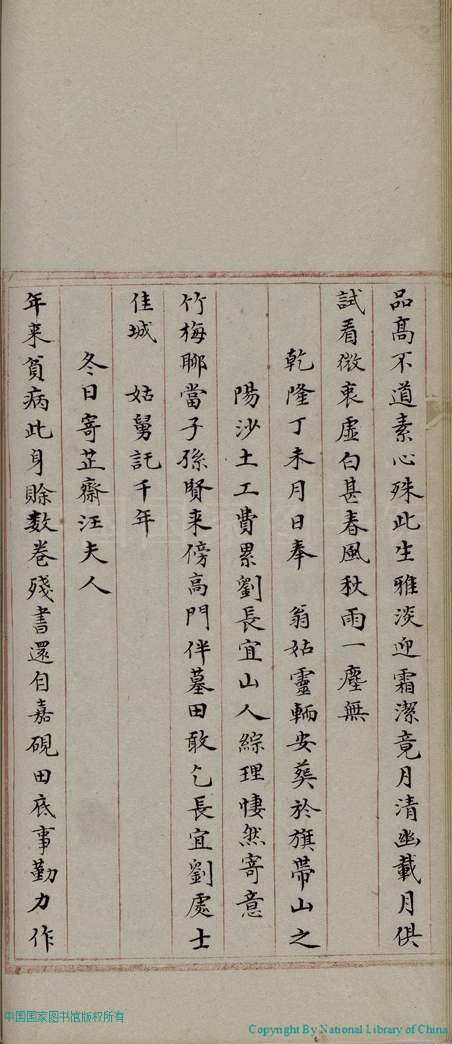 品高不道素心殊此生雅淡迎霜潔竟月清幽載月俱
試看微衷虛白甚春風秋雨一塵無
乾隆丁未月日奉 翁姑靈輀安葬於旗帶山之
陽沙土工費累劉長宜山人綜理悽然寄意
竹梅聊當子孫賢来傍高門伴墓田敢乞長宜劉處士
佳城 姑舅託千年
冬日寄芷齋汪夫人
年来貧病此身賒数卷殘書還自嘉硯田底事勤力作
中国国家图书馆版权所有
Copyright By National Library of China